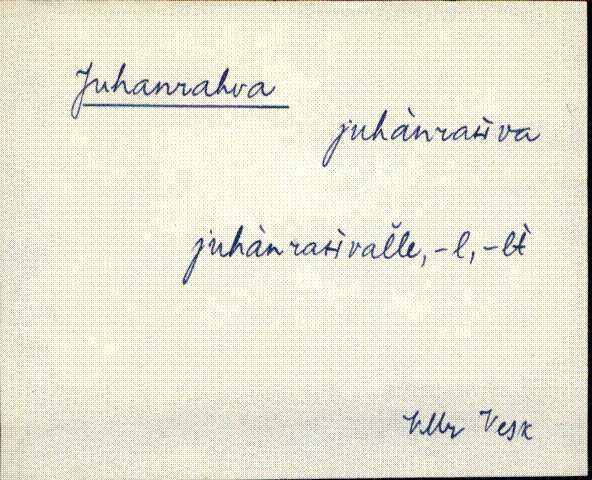 Juhanrahva
juhànrasiva
juhànrasivaľle, -l, -lt̀
VMr Vesk